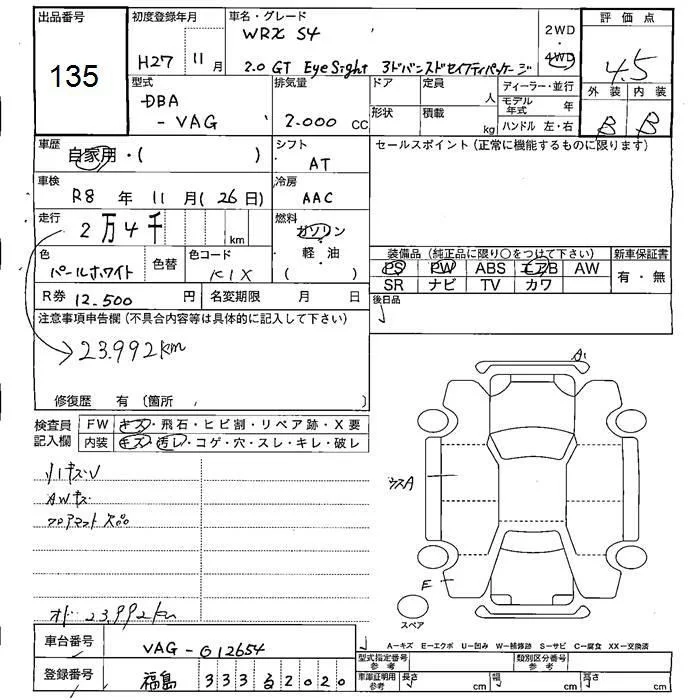 出品番号
135
初度登録年月
H27 11月
車名・グレード
WRX S4
2.0 GT EyeSight アドバンスドセイフティパッケージ
2WD
・
4WD
評価点
4.5
外装 内装
B B
型式
DBA
-VAG
排気量
2.000 CC
ドア
定員
人
形状
積載
kg
ディーラー・並行
モデル年式 年
ハンドル 左・右
車歴
自家用・( )
シフト
AT
セールスポイント(正常に機能するものに限ります)
車検
R8 年 11 月(26日)
冷房
AAC
走行
2万4千
km
燃料
ガソリン
・
軽・油
( )
色
パールホワイト
色替
色コード
K1X
装備品(純正品に限り○をつけて下さい)
新車保証書
PS PW ABS エアB AW
SR ナビ TV カワ
有・無
R券 12.500 円
名変期限 月 日
後日品
注意事項申告欄(不具合内容等は具体的に記入して下さい)
23.992km
修復歴 有(箇所 )
検査員
記入欄
FW キズ・飛石・ヒビ割・リペア跡・X要
内装 キズ・汚レ・コゲ・穴・スレ・キレ・破レ
AWキズ
フロアマット
オド 23.992km
A1
ウスA
E
スペア
A−キズ E−エクボ U−凹み W−補修跡 S−サビ C−腐食 XX−交換済
車台番号
VAG-012654
登録番号
福島 333 る 2020
型式指定番号
参考
類別区分番号
参考
車庫証明用
参考
長さ cm
幅 cm
高さ cm